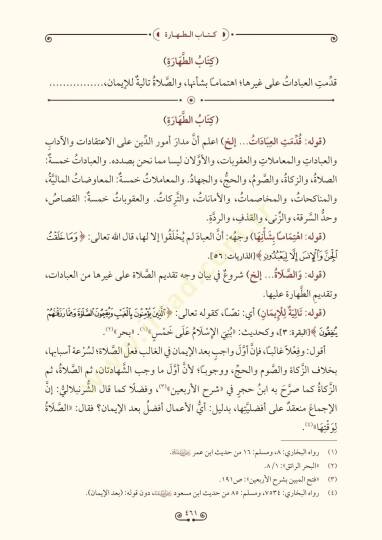 كتاب الطهارة
(كِتَابُ الطَّهَارَةِ)
قدِّمتِ العباداتُ على غيرها؛ اهتماماً بشأنها، والصَّلاةُ تاليةٌ للإيمان،................
(كِتَابُ الطَّهَارَةِ)
(قوله: قُدِّمَتِ العِبَادَاتُ... إلخ) اعلم أنَّ مدارَ أمور الدِّين على الاعتقادات والآداب
والعبادات والمعاملات والعقوبات، والأوَّلان ليسا مما نحن بصدده. والعباداتُ خمسةٌ:
الصلاةُ، والزكاةُ، والصَّومُ، والحجُّ، والجهادُ. والمعاملاتُ خمسةٌ: المعاوضاتُ الماليَّةُ،
والمناكحاتُ، والمخاصماتُ، والأماناتُ، والتَّركاتُ. والعقوباتُ خمسةٌ: القصاصُ،
وحدُّ السَّرقة، والزِّنى، والقذفِ، والردَّةِ.
(قوله: اهْتِمَامَاً بِشَأْنِهَا) وجهُه: أنَّ العبادَ لم يُخْلَقُوا إلا لها، قال الله تعالى: ﴿وَمَا خَلَقْتُ
الْجِنَّ وَالْإِنسَ إِلَّا لِيَعْبُدُونِ﴾ [الذاريات: ٥٦].
(قوله: وَالصَّلَاةُ... إلخ) شروعٌ في بيان وجه تقديم الصَّلاة على غيرها من العبادات،
وتقديمِ الطَّهارة عليها.
(قوله: تَالِيَةٌ لِلْإِيمَانِ) أي: نصَّاً، كقوله تعالى: ﴿الَّذِينَ يُؤْمِنُونَ بِالْغَيْبِ وَيُقِيمُونَ الصَّلَاةَ وَمِمَّا رَزَقْنَاهُمْ
يُنفِقُونَ﴾ [البقرة: ٣]، وكحديث: «بُنِيَ الإِسْلَامُ عَلَى خَمْسٍ»(١). «بحر»(٢).
أقول: وفِعْلاً غالباً، فإنَّ أوَّلَ واجبٍ بعد الإيمان في الغالب فعلُ الصَّلاة؛ لسُرْعة أسبابها،
بخلاف الزَّكاة والصَّوم والحجِّ، ووجوباً؛ لأنَّ أوَّلَ ما وجب الشَّهادتان، ثم الصَّلاةُ، ثم
الزَّكاةُ كما صرَّح به ابنُ حجرٍ في «شرح الأربعين»(٣)، وفضلاً كما قال الشُّرنبلاليُّ: إنَّ
الإجماعَ منعقدٌ على أفضليَّتها، بدليل: أيُّ الأعمال أفضلُ بعد الإيمان؟ فقال: «الصَّلَاةُ
لِوَقْتِهَا»(٤).
(١) رواه البخاري: ٨، ومسلم: ١٦ من حديث ابن عمر
(٢) «البحر الرائق»: ١/ ٨.
(٣) «فتح المبين بشرح الأربعين»: ص١٩١.
(٤) رواه البخاري: ٧٥٣٤، ومسلم: ٨٥ من حديث ابن مسعود، دون قوله: (بعد الإيمان).
٤٦١